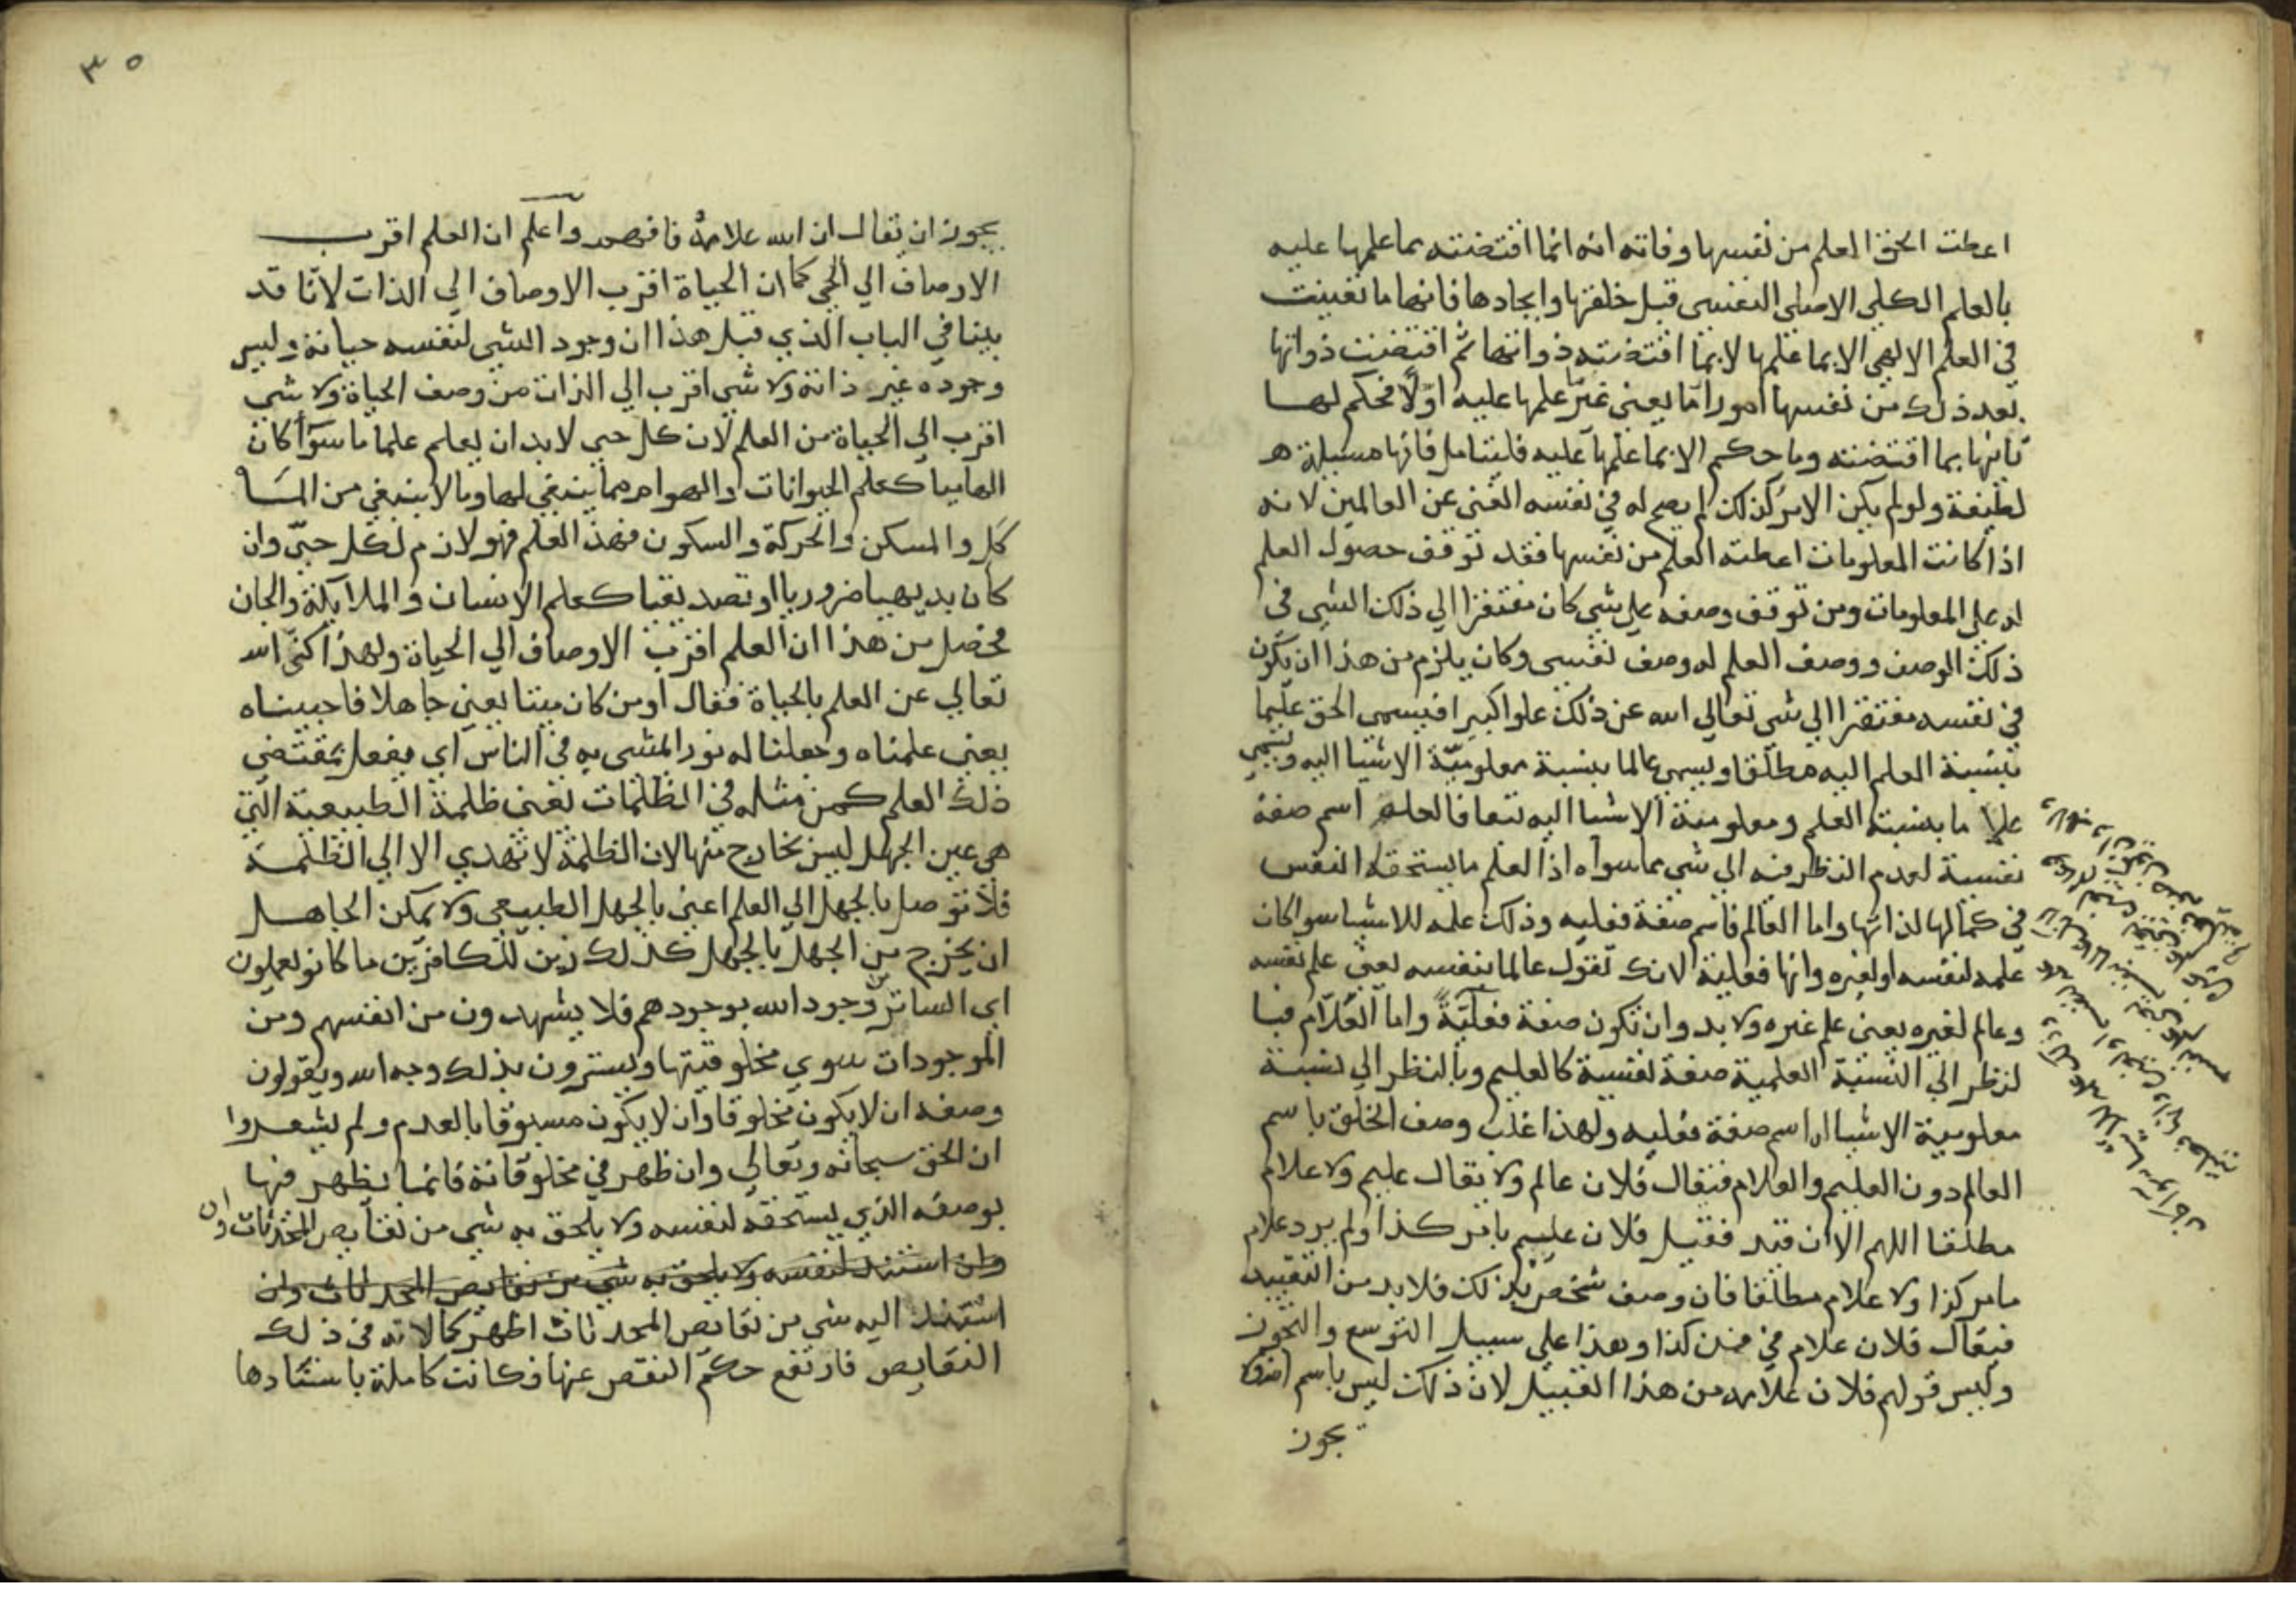 اعطت الحق العلم من نفسها وفاته انه انما اقتضته بما علمها عليه
بالعلم الكلي الاصلي النفسي قبل خلقها وايجادها فانها ما تعينت
في العلم الالهي الا بما علمها لا بما اقتضته ذواتها ثم اقتضت ذواتها
بعد ذلك من نفسها امورا ما يعني غير ما علمها عليه اولا فحكم لها
ثانيا بما اقتضته وما حكم الا بما علمها عليه فليتامل فانها مسيلة
لطيفة ولو لم يكن الامر كذلك لم يصح له في نفسه الغنى عن العالمين لانه
اذا كانت المعلومات اعطته العلم من نفسها فقد توقف حصول العلم
له علي المعلومات ومن توقف وصفه علي شي كان مفتقرا الي ذلك الشي في
ذلك الوصف ووصف العلم له وصف نفسي وكان يلزم من هذا ان يكون
في نفسه مفتقرا الي شي تعالي الله عن ذلك علوا كبيرا فيسمي الحق عليما
بنسبة العلم اليه مطلقا ويسمي عالما بنسبة معلومية الاشيا اليه ويسمي
علاما بنسبة العلم ومعلومية الاشيا اليه معا فالعليم اسم صفة
نفسية لعدم النظر فيه الي شي مما سواه اذ العلم ما يستحقه النفس
في كمالها لذاتها واما العالم فاسم صفة فعليه وذلك علمه للاشيا سوا كان
علمه لنفسه او لغيره وانها فعلية لانك تقول عالما بنفسه يعني علم نفسه
وعالم لغيره يعني علم غيره ولا بد وان تكون صفة فعلية واما العلام فبا
لنظر الي النسبة العلمية صفة نفسية كالعليم وبالنظر الي نسبة
معلومية الاشيا له اسم صفة فعليه ولهذا غلب وصف الخلق باسم
العالم دون العليم والعلام فيقال فلان عالم ولا يقال عليم ولا علام
مطلقا اللهم الا ان قيد فقيل فلان عليم بامر كذا ولم يرد علام
بامر كذا ولا علام مطلقا فان وصف شخص بذلك فلا بد من التقييد
فيقال فلان علام في فن كذا وهذا علي سبيل التوسع والتجوز
وليس قولهم فلان علامه من هذا القبيل لان ذلك ليس باسم
يجوز
٣٥
يجوز ان يقال ان الله علامة فافهمه واعلم ان العلم اقرب
الاوصاف الي الحي كما ان الحياة اقرب الاوصاف الي الذات لاننا قد
بينا في الباب الذي قبل هذا ان وجود الشي لنفسه حياته وليس
وجوده غير ذاته ولا شي اقرب الي الذات من وصف الحياة ولا شي
اقرب الي الحياة من العلم لان كل حي لا بد ان يعلم علما ما سوآ كان
الهاميا كعلم الحيوانات والهوام مما ينبغي لها وما لا ينبغي من الما
كل والمسكن والحركة والسكون فهذ العلم فهو لازم لكل حي وان
كان بديهيا ضروريا او تصديقيا كعلم الانسان والملايكة والجان
فحصل من هذا ان العلم اقرب الاوصاف الي الحياة ولهذا كنى الله
تعالي عن العلم بالحياة فقال اومن كان ميتا يعني جاهلا فاحييناه
يعني علمناه وجعلنا له نورا لمشي به في الناس اي يفعل بمقتضي
ذلك العلم كمن مثله في الظلمات يعني ظلمة الطبيعية التي
هي عين الجهل ليس بخارج منها لان الظلمة لا تهدي الا الي الظلمة
فلا نتوصل بالجهل الي العلم اعني بالجهل الطبيعي ولا يمكن الجاهل
ان يخرج من الجهل بالجهل كذلك زين للكافرين ما كانو يعملون
اي الساترين وجود الله بوجودهم فلا يشهدون من انفسهم ومن
الموجودات سوي مخلوقيتها ويسترون بذلك وجه الله ويقولون
وصفه ان لا يكون مخلوقا وان لا يكون مسبوقا بالعدم ولم يشعروا
ان الحق سبحانه وتعالي وان ظهر في مخلوقاته فانما يظهر فيها
بوصفه الذي يستحقه لنفسه ولا يلحق به شي من نقايص المحدثات وان
وان استند لنفسه ولا يلحق به شي من نقايص المحدثات وان
استند اليه شي من نقايص المحدثات اظهر كمالاته في ذلك
النقايص فارتفع حكم النقص عنها فكانت كاملة باستنادها